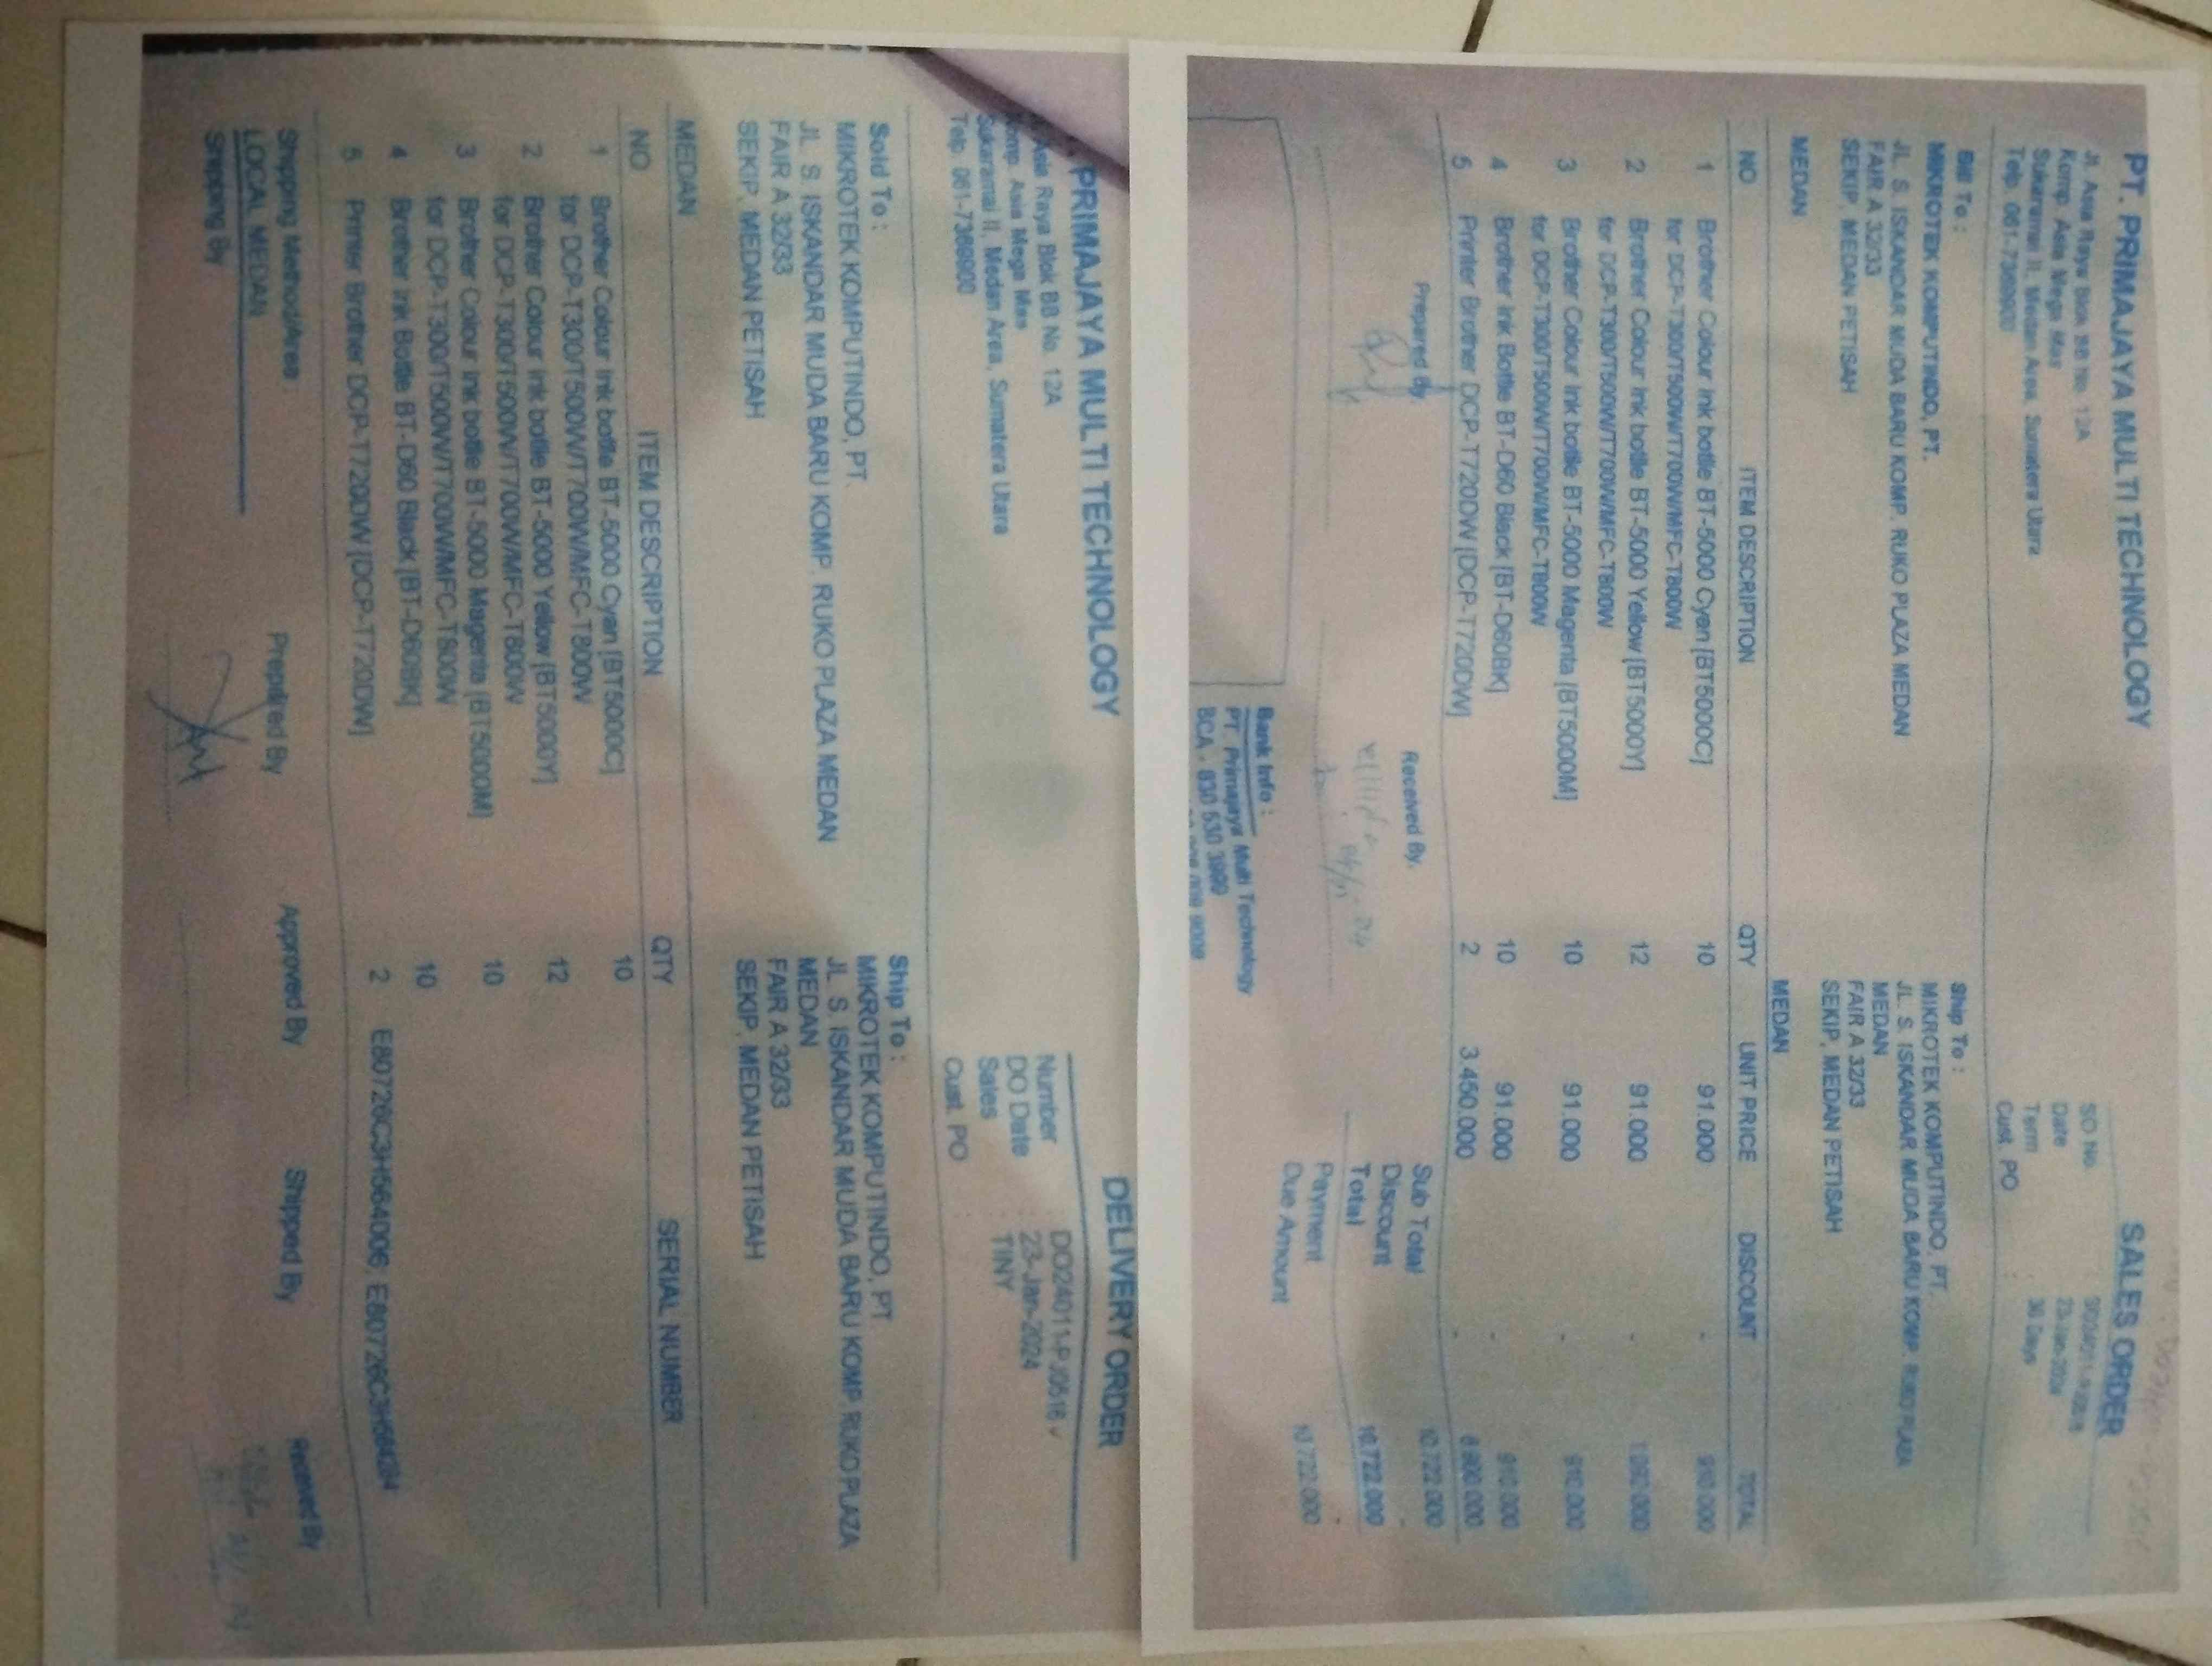 PT. PRIMAJAYA MULTI TECHNOLOGY
SALES ORDER
Jl. Asia Raya Blok BB No. 12A
Komp. Asia Mega Mas
Sukaramai II, Medan Area, Sumatera Utara
Telp. 061-7368900
SO No.
Date : 23-Jan-2024
Term : 30 Days
Cust. PO
Bill To :
MIKROTEK KOMPUTINDO, PT.
JL. S. ISKANDAR MUDA BARU KOMP. RUKO PLAZA MEDAN
FAIR A 32/33
SEKIP, MEDAN PETISAH
MEDAN
Ship To :
MIKROTEK KOMPUTINDO, PT.
JL. S. ISKANDAR MUDA BARU KOMP. RUKO PLAZA
MEDAN
FAIR A 32/33
SEKIP, MEDAN PETISAH
MEDAN
NO ITEM DESCRIPTION QTY UNIT PRICE DISCOUNT TOTAL
1 Brother Colour Ink bottle BT-5000 Cyan [BT5000C] 10 91.000 - 910.000
for DCP-T300/T500W/T700W/MFC-T800W
2 Brother Colour Ink bottle BT-5000 Yellow [BT5000Y] 12 91.000 - 1.092.000
for DCP-T300/T500W/T700W/MFC-T800W
3 Brother Colour Ink bottle BT-5000 Magenta [BT5000M] 10 91.000 - 910.000
for DCP-T300/T500W/T700W/MFC-T800W
4 Brother Ink Bottle BT-D60 Black [BT-D60BK] 10 91.000 - 910.000
5 Printer Brother DCP-T720DW [DCP-T720DW] 2 3.450.000 - 6.900.000
Prepared By
Received By,
Sub Total 10.722.000
Discount -
Total 10.722.000
Payment -
Due Amount 10.722.000
Bank Info :
PT. Primajaya Multi Technology
BCA - 830 530 3900
PRIMAJAYA MULTI TECHNOLOGY
DELIVERY ORDER
Asia Raya Blok BB No. 12A
Komp. Asia Mega Mas
Sukaramai II, Medan Area, Sumatera Utara
Telp. 061-7368900
Number : DO24011-PJ0516
DO Date : 23-Jan-2024
Sales : TINY
Cust. PO
Sold To :
MIKROTEK KOMPUTINDO, PT.
JL. S. ISKANDAR MUDA BARU KOMP. RUKO PLAZA MEDAN
FAIR A 32/33
SEKIP, MEDAN PETISAH
MEDAN
Ship To :
MIKROTEK KOMPUTINDO, PT.
JL. S. ISKANDAR MUDA BARU KOMP. RUKO PLAZA
MEDAN
FAIR A 32/33
SEKIP, MEDAN PETISAH
NO ITEM DESCRIPTION QTY SERIAL NUMBER
1 Brother Colour Ink bottle BT-5000 Cyan [BT5000C] 10
for DCP-T300/T500W/T700W/MFC-T800W
2 Brother Colour Ink bottle BT-5000 Yellow [BT5000Y] 12
for DCP-T300/T500W/T700W/MFC-T800W
3 Brother Colour Ink bottle BT-5000 Magenta [BT5000M] 10
for DCP-T300/T500W/T700W/MFC-T800W
4 Brother Ink Bottle BT-D60 Black [BT-D60BK] 10
5 Printer Brother DCP-T720DW [DCP-T720DW] 2 E80726C3H564006,
Shipping Method/Area :
LOCAL MEDAN
Shipping By
Prepared By
Approved By
Shipped By
Received By